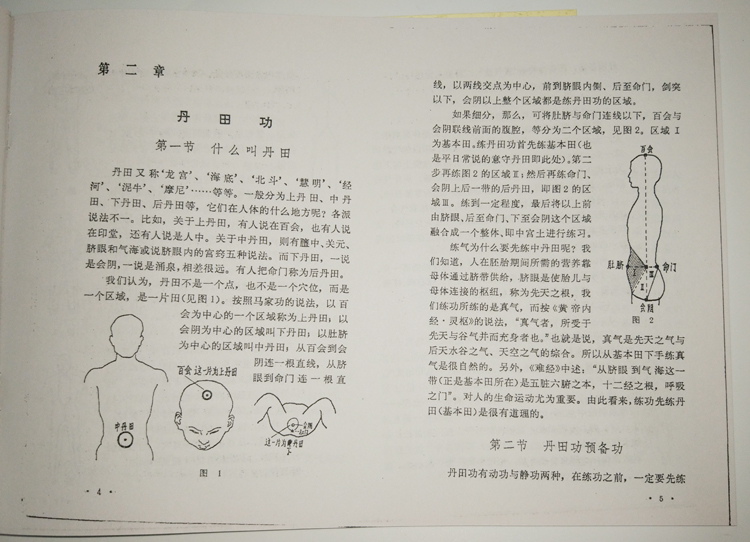 第二章
丹田功
第一节 什么叫丹田
丹田又称‘龙宫’、‘海底’、‘北斗’、‘慧明’、‘经
河’、‘泥牛’、‘摩尼’……等等。一般分为上丹田、中丹
田、下丹田、后丹田等，它们在人体的什么地方呢？各派
说法不一。比如，关于上丹田，有人说在百会，也有人说
在印堂，还有人说是人中。关于中丹田，则有膻中、关元、
脐眼和气海或说脐眼内的宫窍五种说法。而下丹田，一说
是会阴，一说是涌泉，相差很远。有人把命门称为后丹田。
我们认为，丹田不是一个点，也不是一个穴位，而是
一个区域，是一片田（见图1）。按照马家功的说法，以百
会为中心的一个区域称为上丹田；以
会阴为中心的区域叫下丹田；以肚脐
为中心的区域叫中丹田；从百会到会
阴连一根直线，从脐
眼到命门连一根直
中丹田
百会 这一片为上丹田
会阴
图 1
· 4 ·
线，以两线交点为中心，前到脐眼内侧、后至命门，剑突
以下，会阴以上整个区域都是练丹田功的区域。
如果细分，那么，可将肚脐与命门连线以下，百会与
会阴联线前面的腹腔，等分为二个区域，见图2。区域Ⅰ
为基本田。练丹田功首先练基本田（也
是平日常说的意守丹田即此处）。第二
步再练图2的区域Ⅱ；然后再练命门、
会阴上后一带的后丹田，即图2的区
域Ⅲ。练到一定程度，最后将以上前
由脐眼、后至命门、下至会阴这个区域
融合成一个整体、即中宫土进行练习。
练气为什么要先练中丹田呢？我
们知道，人在胚胎期间所需的营养靠
母体通过脐带供给，脐眼是使胎儿与
母体连接的枢纽，称为先天之根，我
们练功所练的是真气，而按《黄帝内
经·灵枢》的说法，“真气者，所受于
先天与谷气并而充身者也。”也就是说，真气是先天之气与
后天水谷之气、天空之气的综合。所以从基本田下手练真
气是很自然的。另外，《难经》中述：“从脐眼到气海这一
带（正是基本田所在）是五脏六腑之本，十二经之根，呼吸
之门”。对人的生命运动尤为重要。由此看来，练功先练丹
田（基本田）是很有道理的。
百会
肚脐
命门
会阴
图 2
第二节 丹田功预备功
丹田功有动功与静功两种，在练功之前，一定要先练
· 5 ·